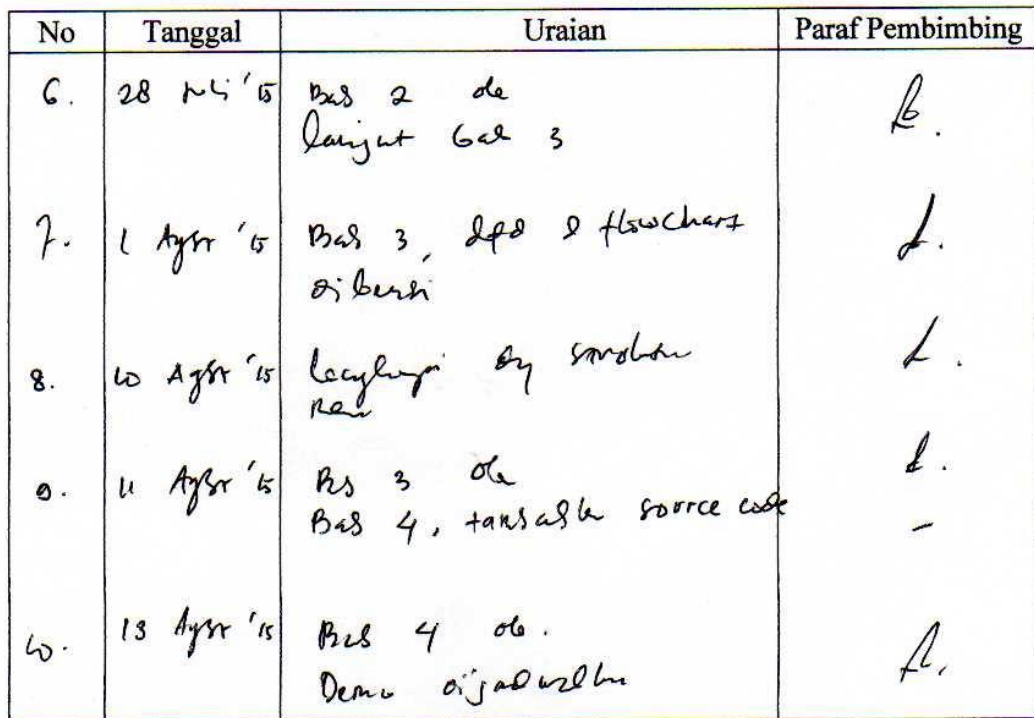 No Tanggal Uraian Paraf Pembimbing
6. 28 Juli '15 Bab 2 ok
lanjut bab 3
7. 1 Agst '15 Bab 3, dfd & flowchart
direvisi
8. 10 Agst '15 lengkapi dg
9. 11 Agst '15 Bab 3 ok
Bab 4, tambahkan source code
10. 13 Agst '15 Bab 4 ok.
Demo dijadwalkan